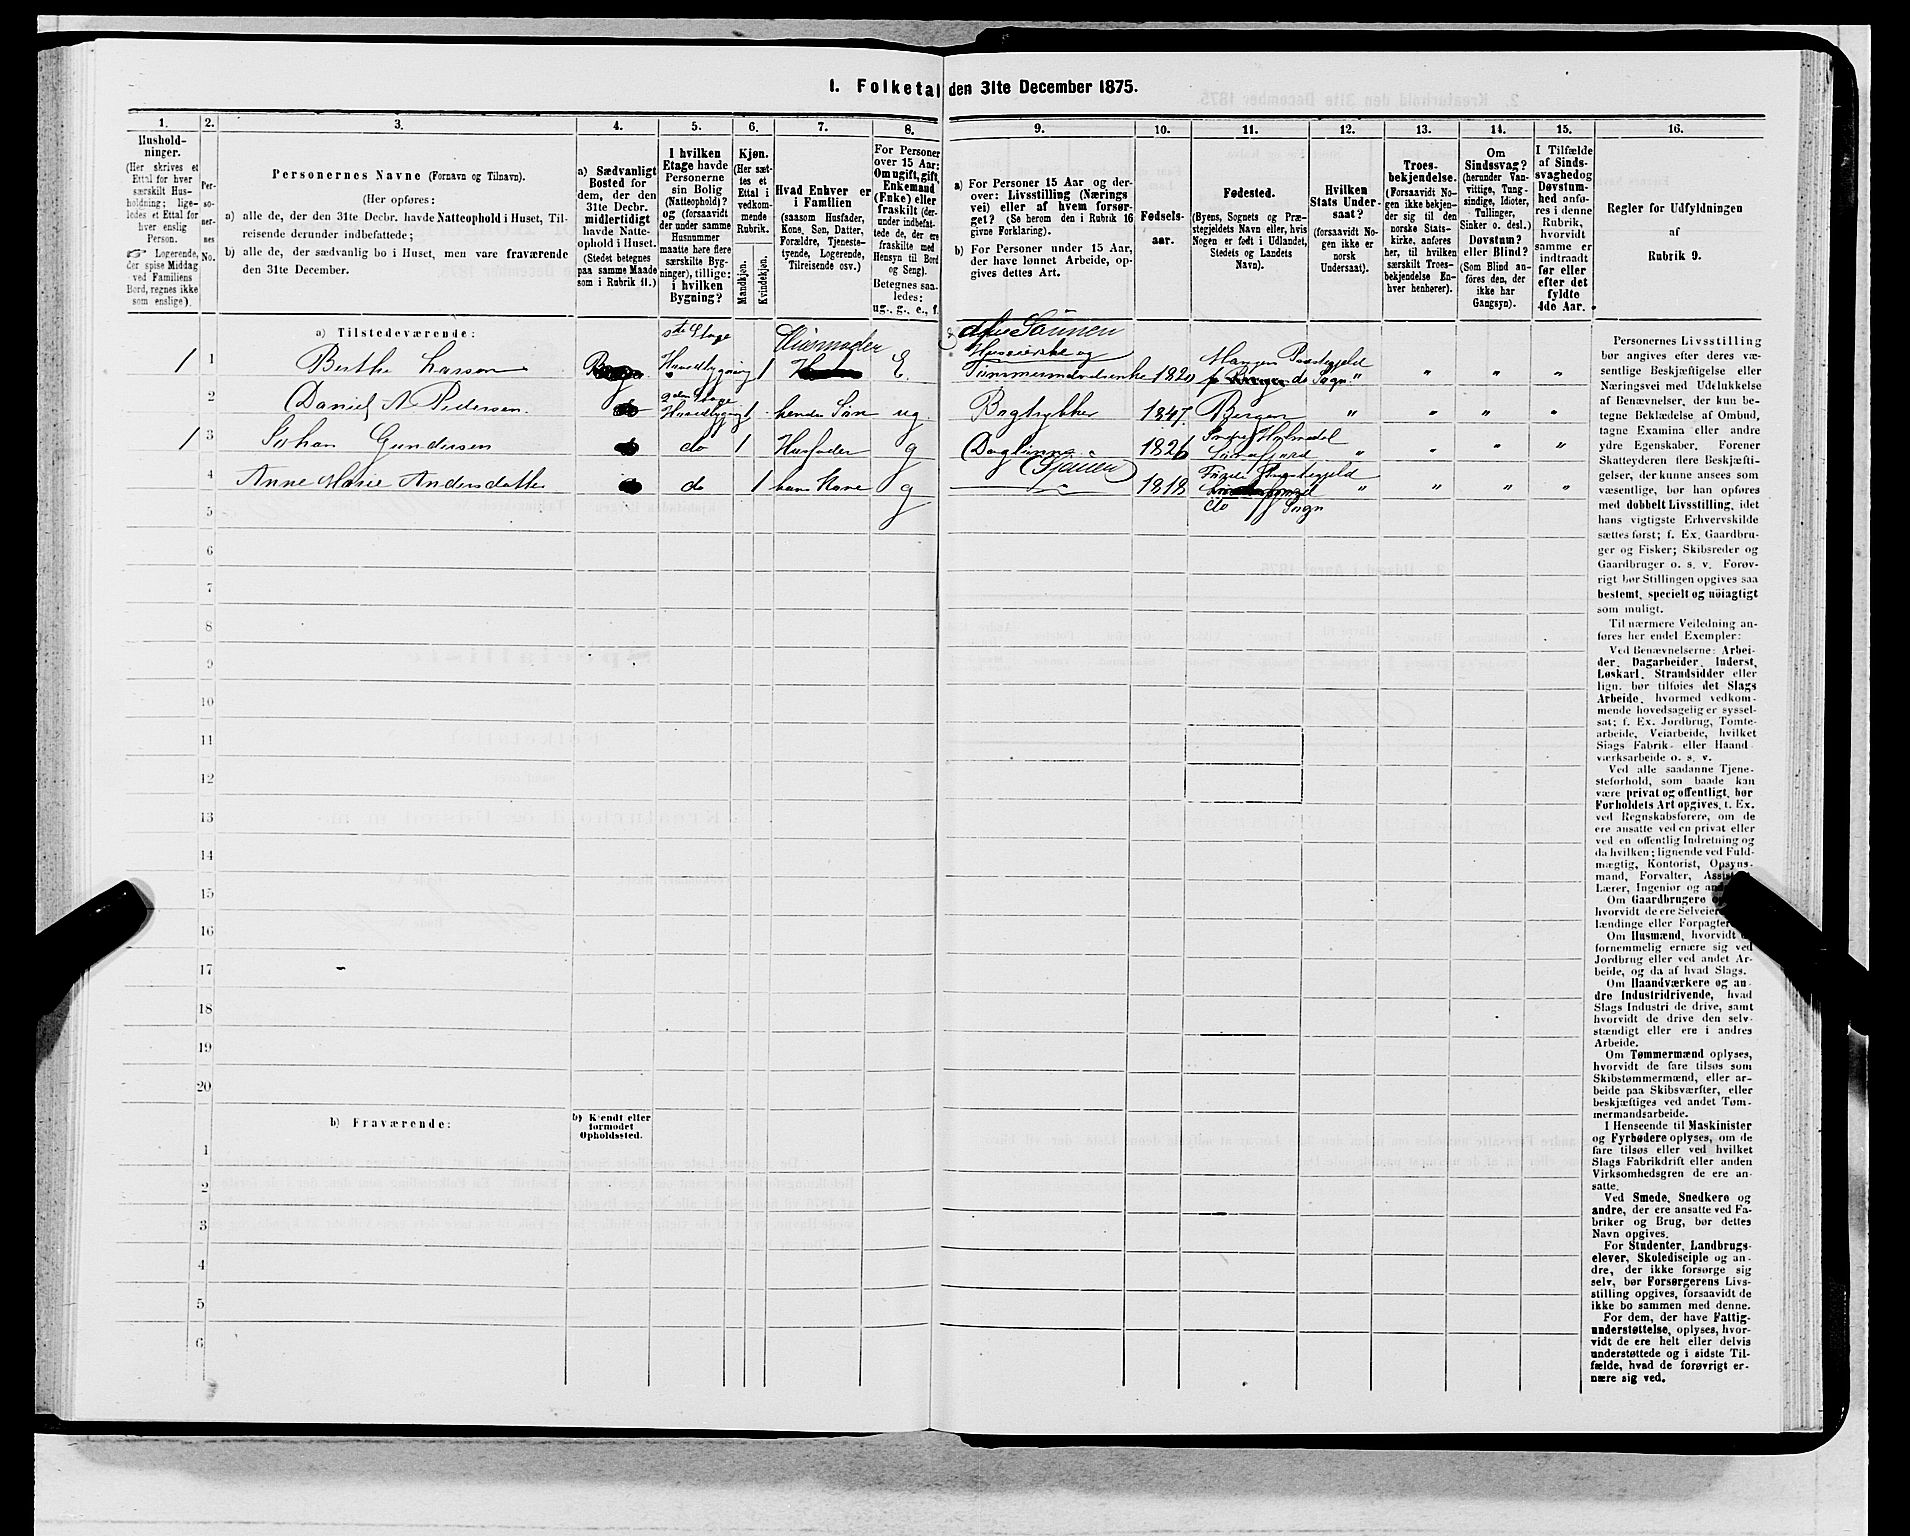 I. Folketal den 31te December 1875.
1. 2. 3. 4. 5. 6. 7. 8. 9. 10. 11. 12. 13. 14. 15. 16.
Hushold-
ninger.
(Her skrives et
Ettal for hver
særskilt Hus-
holdning; lige-
ledes et Ettal for
hver enslig
Person.
☞ Logerende,
der spise Middag
ved Familiens
Bord, regnes ikke
som enslige).
Per-
so-
ner-
nes
No.
Personernes Navne (Fornavn og Tilnavn).
(Her opføres:
a) alle de, der den 31te Decbr. havde Natteophold i Huset, Til-
reisende derunder indbefattede;
b) alle de, der sædvanlig bo i Huset, men vare fraværende
den 31te December.
a) Sædvanligt
Bosted for
dem, der den
31te Decbr.
midlertidigt
havde Natte-
ophold i Huset.
(Stedet betegnes
paa samme Maade
som i Rubrik 11.)
I hvilken
Etage havde
Personerne
sin Bolig
(Natteophold)?
og (forsaavidt
der under samme
Husnummer
maatte høre flere
særskilte Byg-
ninger), tillige:
i hvilken
Bygning?
Kjøn.
(Her sæt-
tes et
Ettal i
vedkom-
mende
Rubrik.
Mandkjøn.
Kvindekjøn.
Hvad Enhver er
i Familien
(saasom Husfader,
Kone, Søn, Datter,
Forældre, Tjeneste-
tyende, Logerende,
Tilreisende osv.)
For Personer
over 15 Aar:
Om ugift, gift,
Enkemand
(Enke) eller
fraskilt (der-
under indbefat-
tede de, der ere
fraskilte med
Hensyn til Bord
og Seng).
Betegnes saa-
ledes:
ug., g., e., f.
a) For Personer 15 Aar og der-
over: Livsstilling (Nærings
vei) eller af hvem forsør-
get? (Se herom den i Rubrik 16
givne Forklaring).
b) For Personer under 15 Aar,
der have lønnet Arbeide, op-
gives dettes Art.
Fødsels-
aar.
Fødested.
(Byens, Sognets og Præ-
stegjeldets Navn eller, hvis
Nogen er født i Udlandet,
Stedets og Landets
Navn).
Hvilken
Stats Under-
saat?
(forsaavidt No-
gen ikke er
norsk
Undersaat).
Troes-
bekjendelse.
(Forsaavidt No-
gen ikke bekjen-
der sig til den
norske Stats-
kirke, anføres
her, til hvilken
særskilt Troes-
bekjendelse En-
hver henhører).
Om
Sindssvag?
(herunder Van-
vittige, Tung-
sindige, Idioter,
Tullinger,
Sinker o. desl.)
Døvstum?
eller Blind?
(Som Blind an-
føres den, der
ikke har
Gangsyn).
I Tilfælde
af Sinds-
svaghed og
Døvstum-
hed anfø-
res i denne
Rubrik,
hvorvidt
samme er
indtraadt
før eller
efter det
fyldte
4de Aar.
Regler for Udfyldningen
af
Rubrik 9.
a) Tilstedeværende:
1 1 Berthe Larsen Hovedbygning 1 Huusmoder E. Huseierske og Tømmermandsenke 182 Sogn "
2 Daniel A Pedersen Hovedbygning 1 hendes Søn ug. Bogtrykker 1847. Bergen "
1 3 Johan Gundersen do 1 Husfader g Daglønner 1826 "
4 Anne Marie Andersdatter do 1 hans Kone g 1818 "
do Sogn
5
6
7
8
9
10
11
12
13
14
15
16
17
18
19
20
b) Fraværende:
b) Kjendt eller
formodet
Opholdssted.
1
2
3
4
5
6
Personernes Livsstilling
bør angives efter deres væ-
sentlige Beskjæftigelse eller
Næringsvei med Udelukkelse
af Benævnelser, der kun be-
tegne Beklædelse af Ombud,
tagne Examina eller andre
ydre Egenskaber. Forener
Skatteyderen flere Beskjæfti-
gelser, der kunne ansees som
væsentlige, bør han opføres
med dobbelt Livsstilling, idet
hans vigtigste Erhvervskilde
sættes først; f. Ex. Gaardbru-
ger og Fisker; Skibsreder og
Gaardbruger o. s. v. Forøv-
rigt bør Stillingen opgives saa
bestemt, specielt og nöiagtigt
som muligt.
Til nærmere Veiledning an-
føres her endel Exempler:
Ved Benævnelserne: Arbei-
der, Dagarbeider, Inderst,
Løskarl, Strandsidder eller
lign. bør tilføies det Slags
Arbeide, hvormed vedkom-
mende hovedsagelig er syssel-
sat; f. Ex. Jordbrug, Tomte-
arbeide, Veiarbeide, hvilket
Slags Fabrik- eller Haand-
værksarbeide o. s. v.
Ved alle saadanne Tjene-
steforhold, som baade kan
være privat og offentligt, bør
Forholdets Art opgives, t. Ex.
ved Regnskabsførere, om de
ere ansatte ved en privat eller
ved en offentlig Indretning og
da hvilken; lignende ved Fuld-
mægtig, Kontorist, Opsyns-
mand, Forvalter,
Lærer, Ingeniør og
Om Gaardbrugere
hvorvidt de ere Selveiere,
lændinge eller Forpagtere.
Om Husmænd, hvorvidt
fornemmelig ernære sig ved
Jordbrug eller ved andet Ar-
beide, og da af hvad Slags.
Om Haandværkere og an-
dre Industridrivende, hvad
Slags Industri de drive, samt
hvorvidt de drive den selv-
stændigt eller ere i andres
Arbeide.
Om Tømmermænd oplyses,
hvorvidt de fare tilsøs som
Skibstømmermænd, eller ar-
beide paa Skibsværfter, eller
beskjæftiges ved andet Tøm-
mermandsarbeide.
I Henseende til Maskinister
og Fyrbødere oplyses, om de
fare tilsøs eller ved hvilket
Slags Fabrikdrift eller anden
Virksomhedsgren de ere an-
satte.
Ved Smede, Snedkere og
andre, der ere ansatte ved Fa-
briker og Brug, bør dettes
Navn opgives.
For Studenter, Landbrugs-
elever, Skoledisciple og an-
dre, der ikke forsørge sig
selv, bør Forsørgerens Livs-
stilling opgives, forsaavidt de
ikke bo sammen med denne.
For dem, der have Fattig-
understøttelse, oplyses, hvor-
vidt de ere helt eller delvis
understøttede og i sidste Til-
fælde, hvad de forøvrigt er-
nære sig ved.